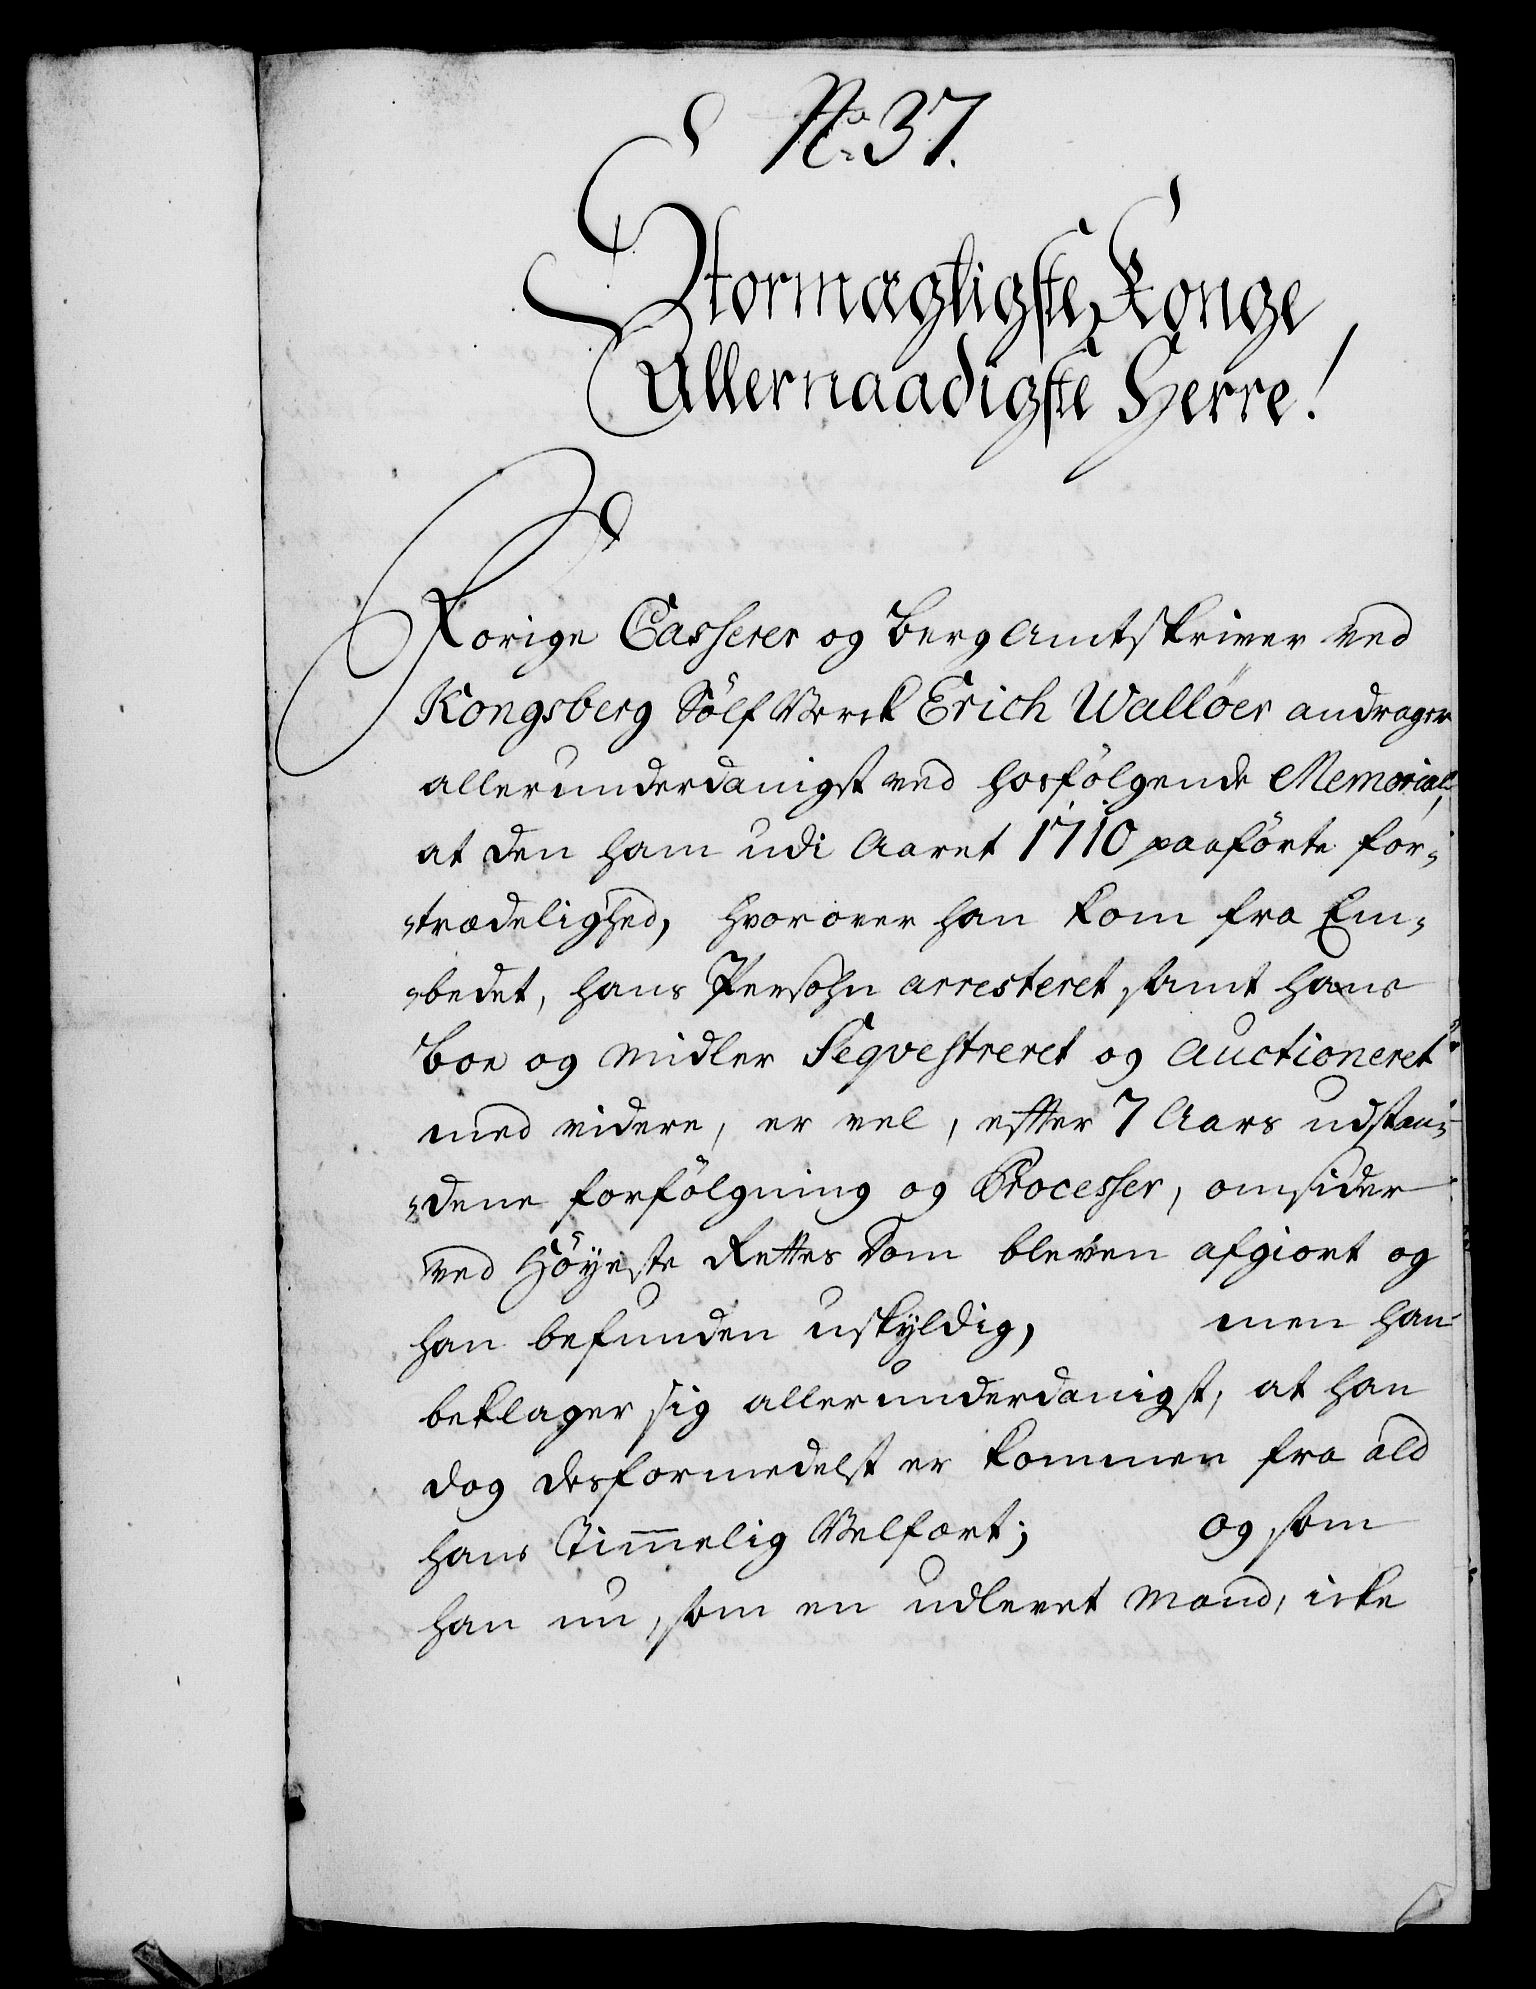 No. 37.
Stormægtigste Konge
Allernaadigste Herre!
Forige Casserer og Berg Amtskriver ved
Kongsberg Sölf Verck Erich Wallöer andrager
allerunderdanigst ved hosfölgende Memorial,
at den ham udi Aaret 1710 paaförte for-
-trædelighed, hvorover han kom fra Em-
-bedet, hans Persohn arresteret, samt hans
Boe og Midler Seqvestreret og Auctioneret
med videre, er vel, efter 7 Aars udstan-
-dene forfölgning og Processer, omsider
ved Höyeste Rettes Dom bleven afgiort og
han befunden uskyldig, men han
beklager sig allerunderdanigst, at han
dog desformedelst er kommen fra ald
hans Timmelig Velfært; og som
han nu, som en udlevet Mand, icke